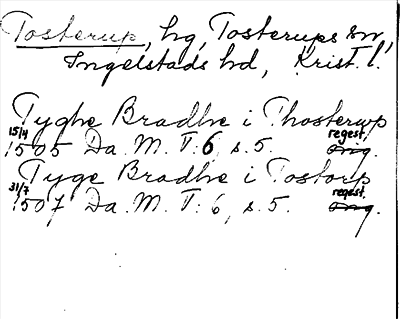 Tosterup, hg, Tosterups sn,
Ingelstads hd, Krist. l.
Tyghe Bradhe i Thosterup
15/4 1505 Da. M. T. 6, s. 5. regest. orig.
Tyge Bradhe i Tostorp
31/7 1507 Da. M. T. 6, s. 5. regest. orig.